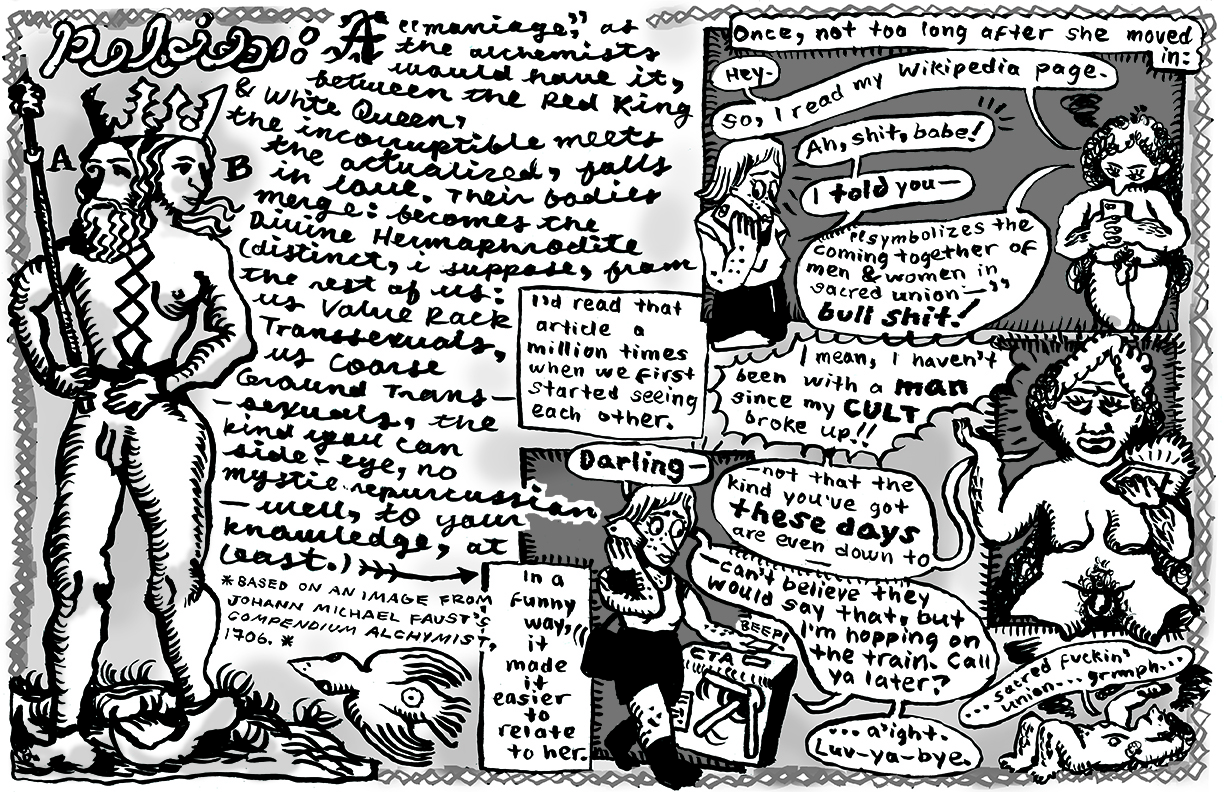 A "marriage," as
the alchemists
would have it,
between the Red King
& White Queen,
the incorruptible meets
the actualized, falls
in love. Their bodies
merge: becomes the
Divine Hermaphrodite
(distinct, i suppose, from
the rest of us:
us Value Rack
Transsexuals,
us Coarse
Ground Trans-
-sexuals, the
kind you can
side-eye, no
mystic repurcussian
—well, to your
knowledge, at
least.)
*BASED ON AN IMAGE FROM
JOHANN MICHAEL FAUST'S
COMPENDIUM ALCHYMIST,
1706. *
A
B
Once, not too long after she moved
in:
Hey-
So, I read my Wikipedia page.
Ah, shit, babe!
I told you—
"symbolizes the
coming together of
men & women in
sacred union—"
bull shit!
I'd read that
article a
million times
when we first
started seeing
each other.
I mean, I haven't
been with a man
since my CULT
broke up!!
Darling—
—not that the
kind you've got
these days
are even down to
—
—can't believe they
would say that, but
I'm hopping on
the train. Call
ya later?
BEEP!
CTA
In a
funny
way,
it
made
it
easier
to
relate
to her.
...a'ight.
Luv-ya-bye.
...sacred fuckin'
union... grmmph...